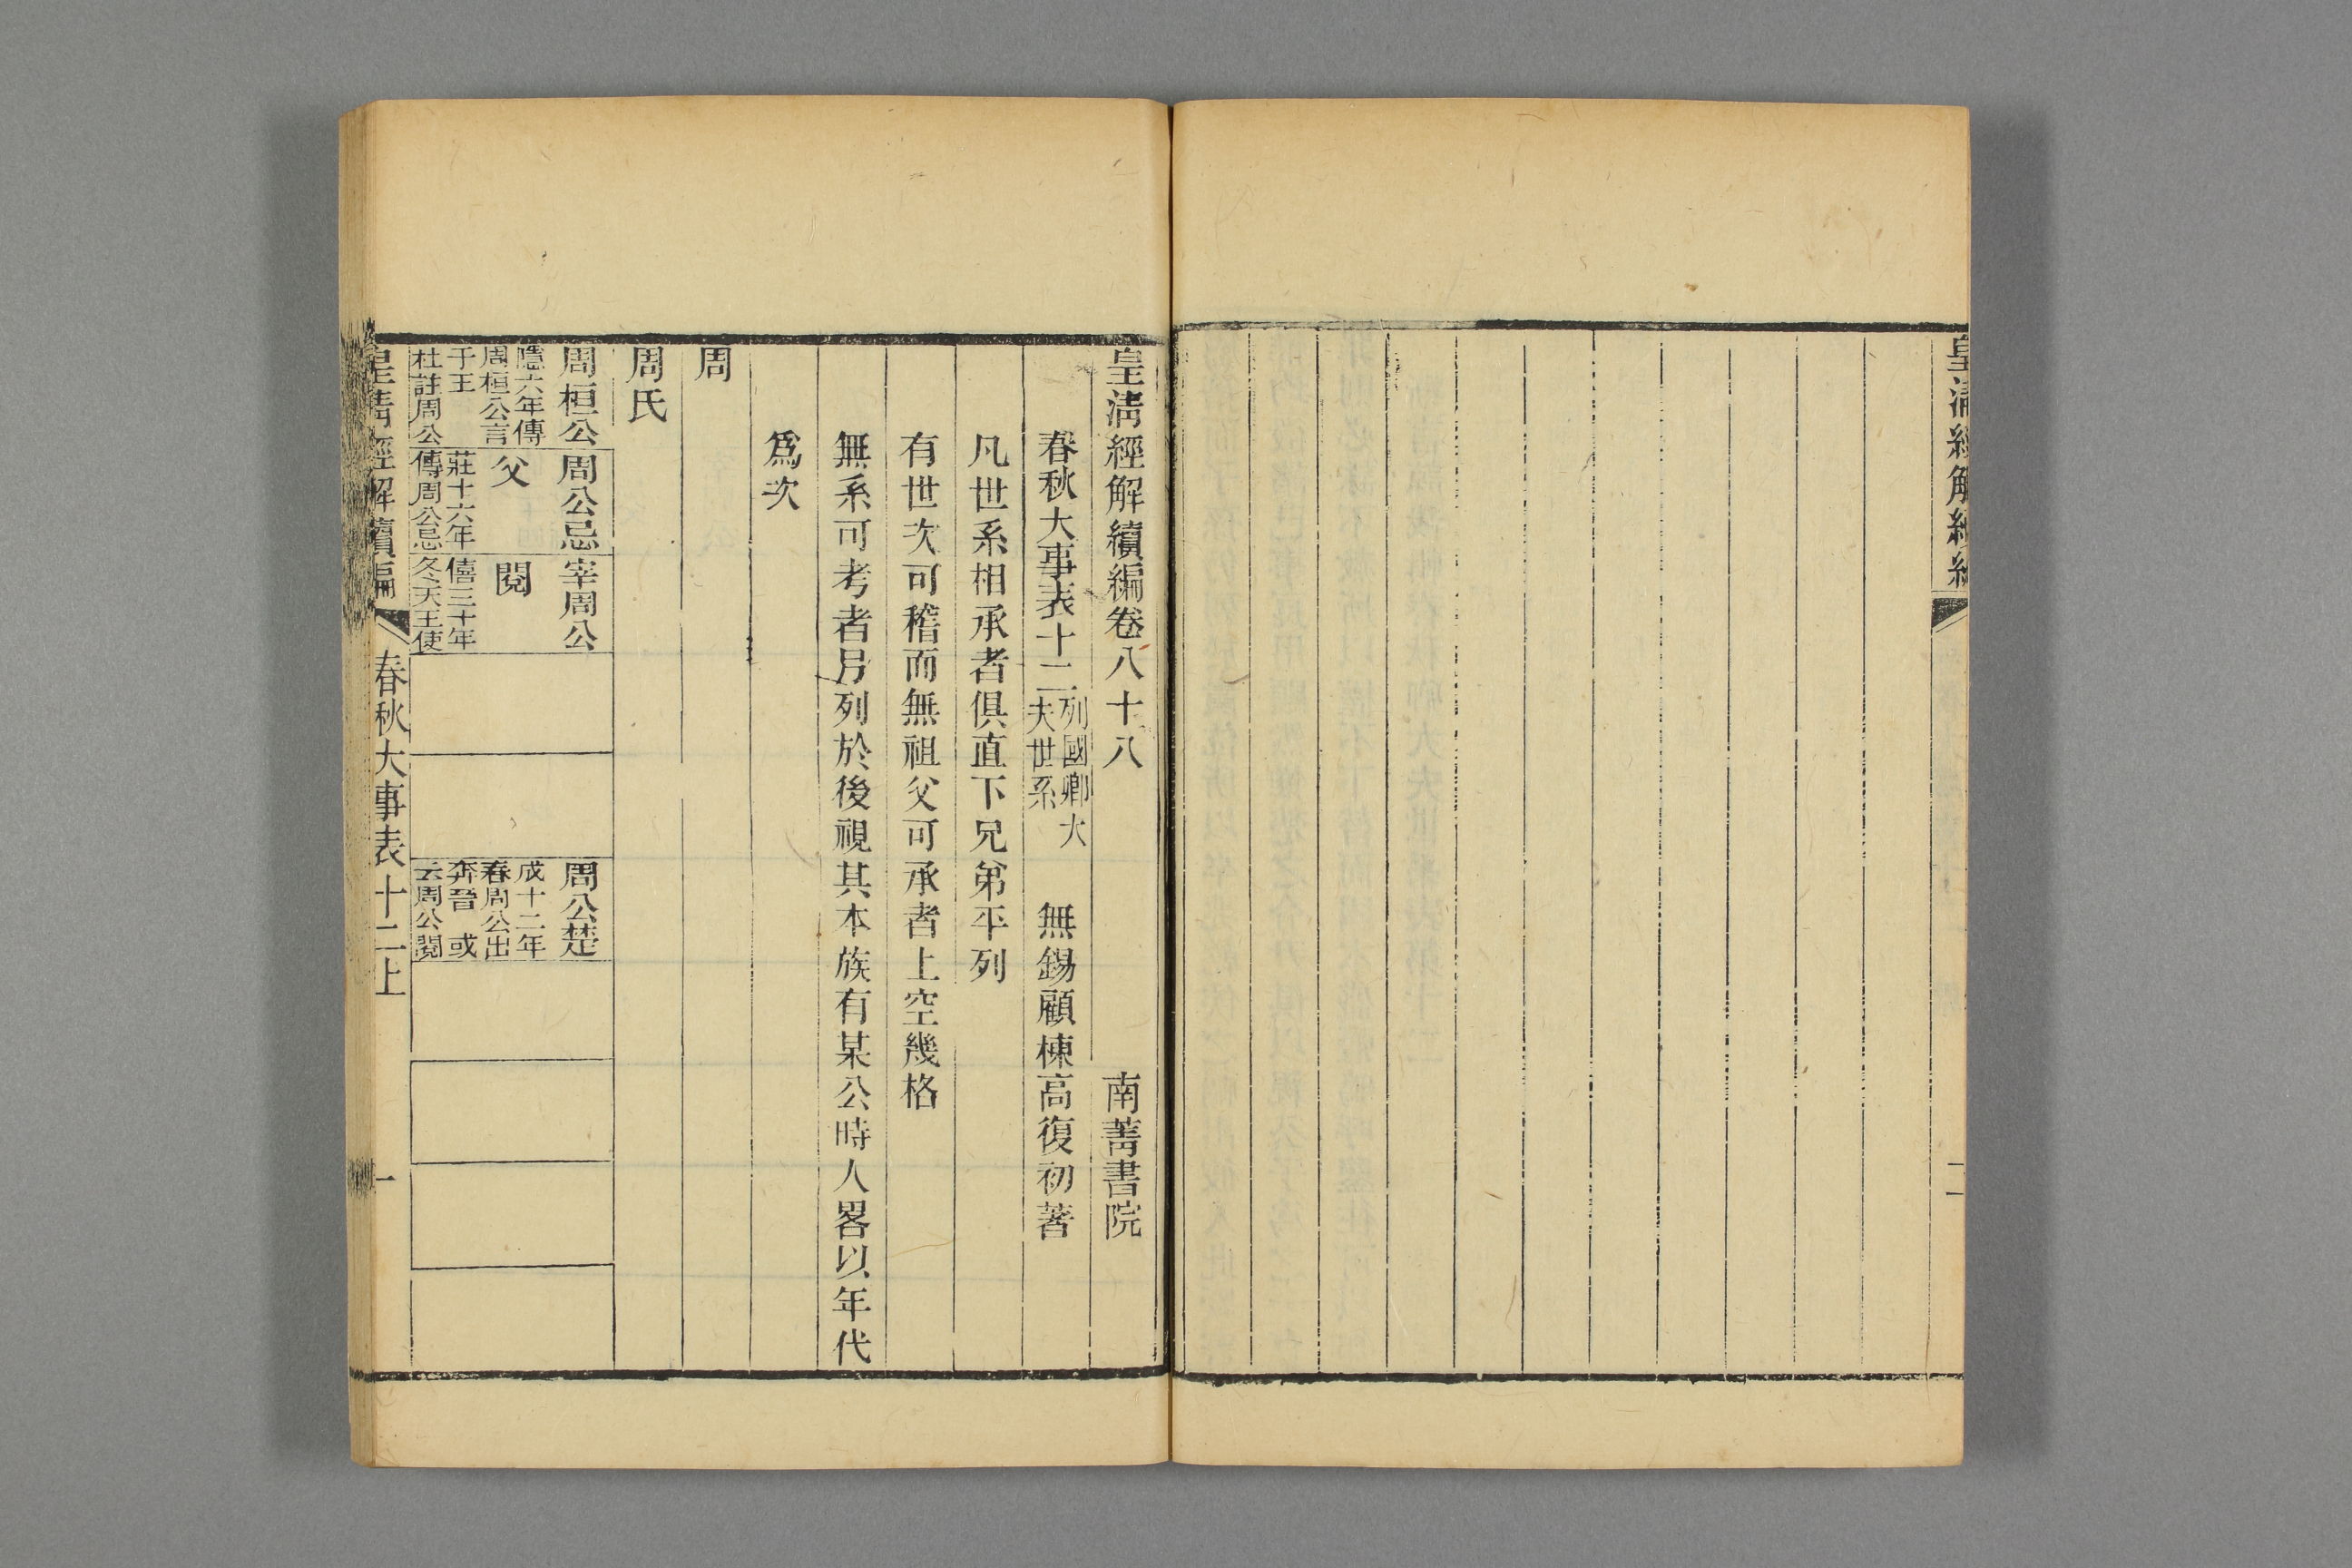 皇清經解續編
二
皇清經解續編卷八十八 南菁書院
春秋大事表十二 列國卿大夫世系 無錫顧棟高復初著
凡世系相承者俱直下兄弟平列
有世次可稽而無祖父可承者上空幾格
無系可考者另列於後視其本族有某公時人畧以年代
爲次
周
周氏
周桓公
隱六年傳
周桓公言
于王
杜註周公
周公忌
父
莊十六年
傳周公忌
宰周公
閱
僖三十年
冬天王使
周公楚
成十二年
春周公出
奔晉 或
云周公閱
皇清經解續編 春秋大事表十二上 一